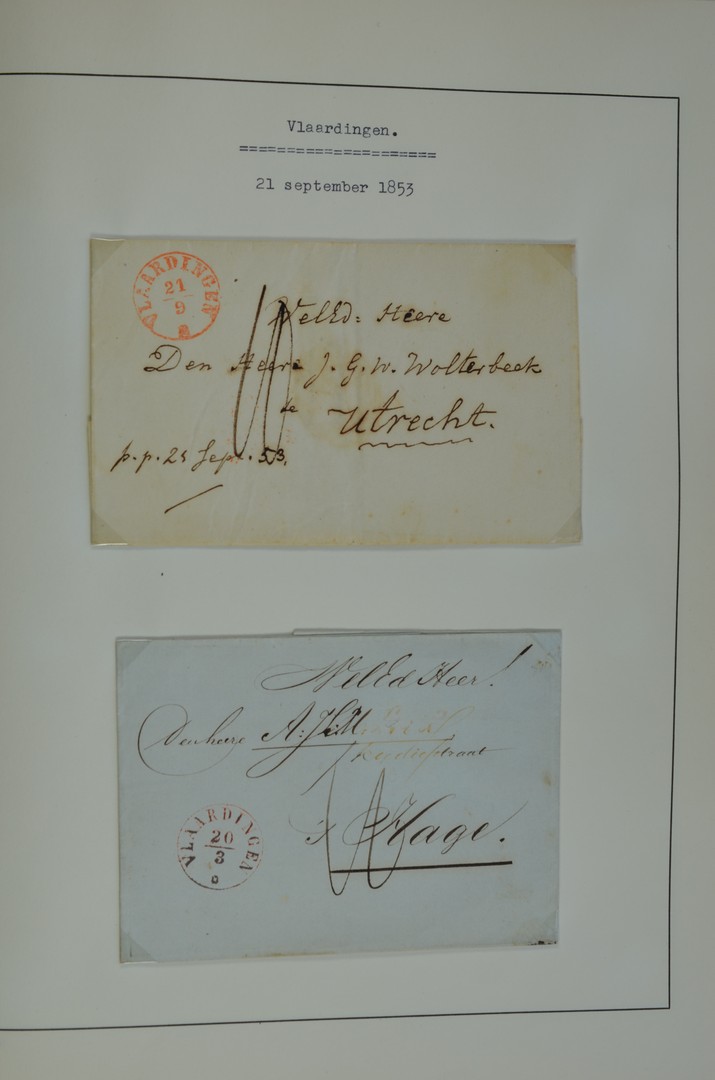 Vlaardingen.
====================
21 september 1853
VLAARDINGEN
21
9
WelEd: Heere
Den Heere J. G. W. Wolterbeek
te
Utrecht.
p.p. 21 Sept. 53.
WelEd Heer!
Den heere A: J:
VLAARDINGEN
20
3
's Hage.